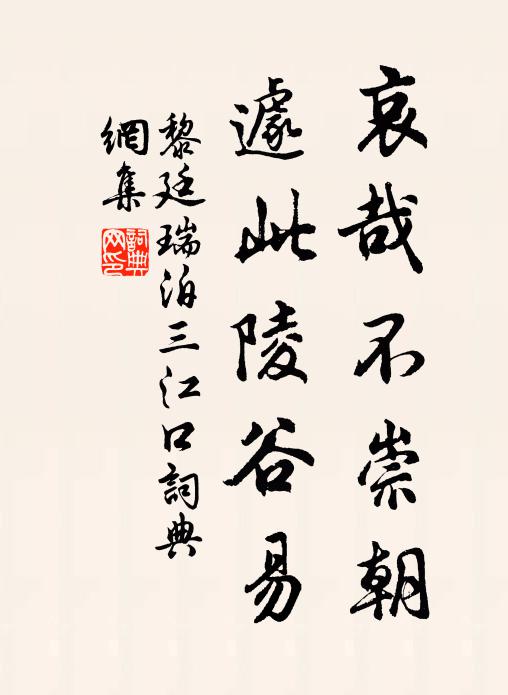 哀哉不崇朝
遽此陵谷易
黎廷瑞泊三江口詞典
網集
詞典
网印